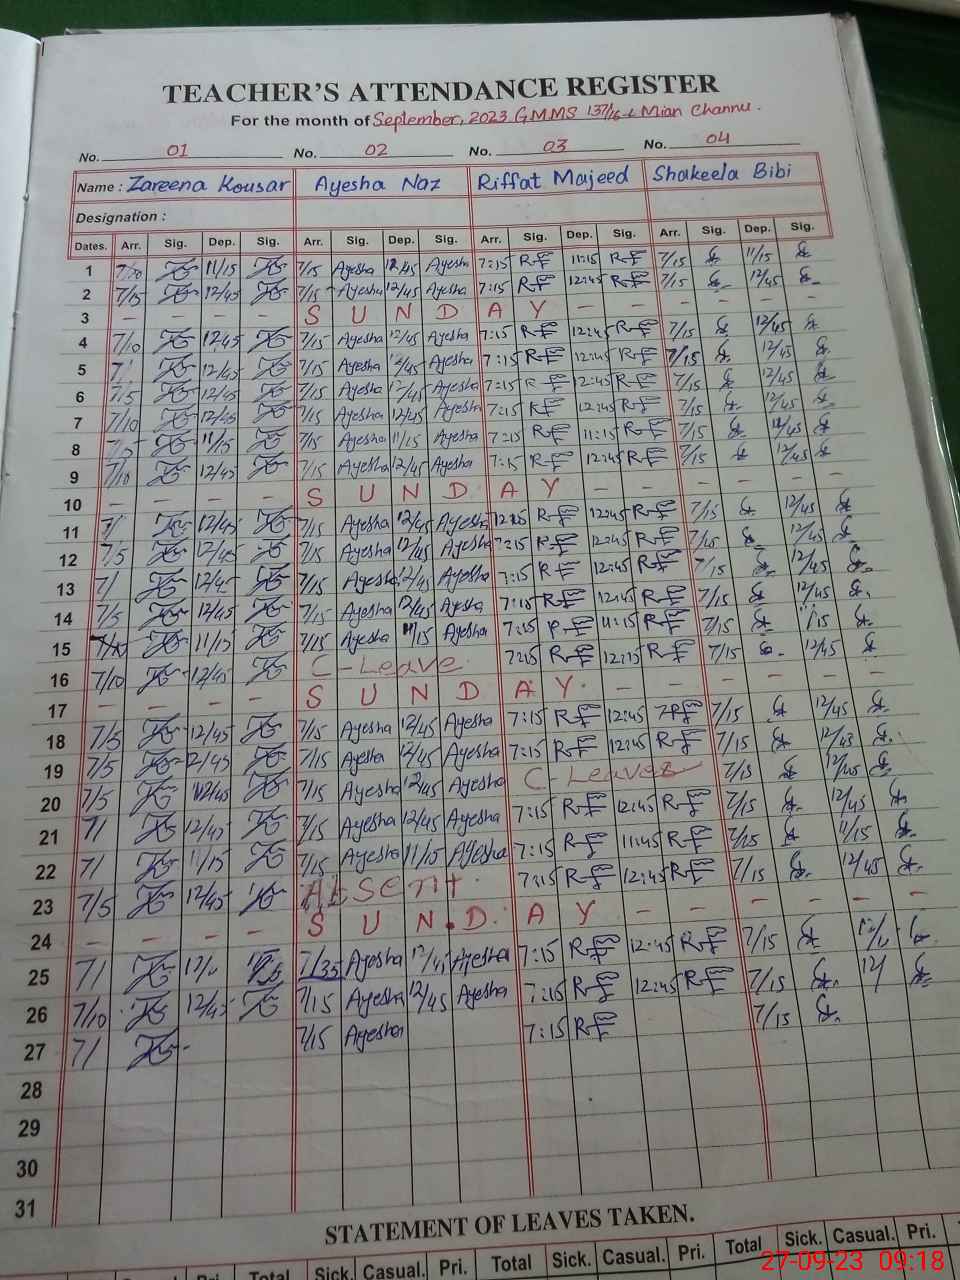 TEACHER'S ATTENDANCE REGISTER
For the month of September, 2023 GMMS 137/16-L Mian Channu.
No. 01 No. 02 No. 03 No. 04
Name : Zareena Kousar Ayesha Naz Riffat Majeed Shakeela Bibi
Designation :
Dates. Arr. Sig. Dep. Sig. Arr. Sig. Dep. Sig. Arr. Sig. Dep. Sig. Arr. Sig. Dep. Sig.
1 7/10 11/15 7/15 Ayesha 12/45 Ayesha 7:15 RF 11:15 RF 7/15 11/15
2 7/15 12/45 7/15 Ayesha 12/45 Ayesha 7:15 RF 12:45 RF 7/15 12/45
3 – – – – S U N D A Y – – – – – –
4 7/10 12/45 7/15 Ayesha 12/45 Ayesha 7:15 RF 12:45 RF 7/15 12/45
5 12/45 7/15 Ayesha 12/45 Ayesha 7:15 RF 12:45 RF 7/15 12/45
6 12/45 7/15 Ayesha 12/45 Ayesha 7:15 RF 12:45 RF 7/15 12/45
7 7/10 12/45 7/15 Ayesha 12/45 Ayesha 7:15 RF 12:45 RF 7/15 12/45
8 11/15 7/15 Ayesha 11/15 Ayesha 7:15 RF 11:15 RF 7/15
9 7/10 12/45 7/15 Ayesha 12/45 Ayesha 7:15 RF 12:45 RF 7/15 12/45
10 – – – – S U N D A Y – – – – – –
11 12/45 7/15 Ayesha 12/45 Ayesha RF 12:45 RF 7/15 12/45
12 7/5 12/45 7/15 Ayesha 12/45 Ayesha 7:15 RF 12:45 RF 7/15 12/45
13 7/ 7/15 Ayesha 12/45 Ayesha 7:15 RF 12:45 RF 7/15 12/45
14 7/5 12/45 7/15 Ayesha 12/45 Ayesha 7:15 RF 12:45 RF 7/15 12/45
15 7/10 11/15 7/15 Ayesha 11/15 Ayesha 7:15 RF 11:15 RF 7/15 11/15
16 7/10 12/45 C-Leave. 7:15 RF RF 7/15 12/45
17 – – – – S U N D A Y – – – – – –
18 7/5 12/45 7/15 Ayesha 12/45 Ayesha 7:15 RF 12:45 RF 7/15 12/45
19 7/5 7/15 Ayesha 12/45 Ayesha 7:15 RF 12:45 RF 7/15
20 7/5 12/45 7/15 Ayesha 12/45 Ayesha C-Leave 7/15 12/45
21 7/ 12/45 7/15 Ayesha 12/45 Ayesha 7:15 RF 12:45 RF 7/15 12/45
22 7/ 11/15 7/15 Ayesha 11/15 Ayesha 7:15 RF 11:45 RF 7/15 11/15
23 7/5 12/45 Absent. 7:15 RF 12:45 RF 7/15 12/45
24 – – – – S U N D A Y – – – – – –
25 7/ 7/35 Ayesha 12/45 Ayesha 7:15 RF 12:45 RF 7/15
26 7/10 12/45 7/15 Ayesha 12/45 Ayesha 7:15 RF 12:45 RF 7/15 12/
27 7/ 7/15 Ayesha 7:15 RF 7/15
28
29
30
31
STATEMENT OF LEAVES TAKEN.
Casual. Pri. Total Sick. Casual. Pri. Total Sick. Casual. Pri. Total Sick. Casual. Pri.
27-09-23 09:18